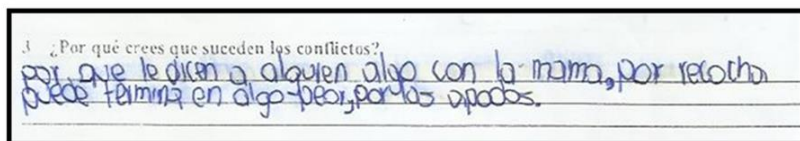 3 ¿Por qué crees que suceden los conflictos?
por que le dicen a alguien algo con la mama, por recocha
puede termina en algo peor, por los apodos.